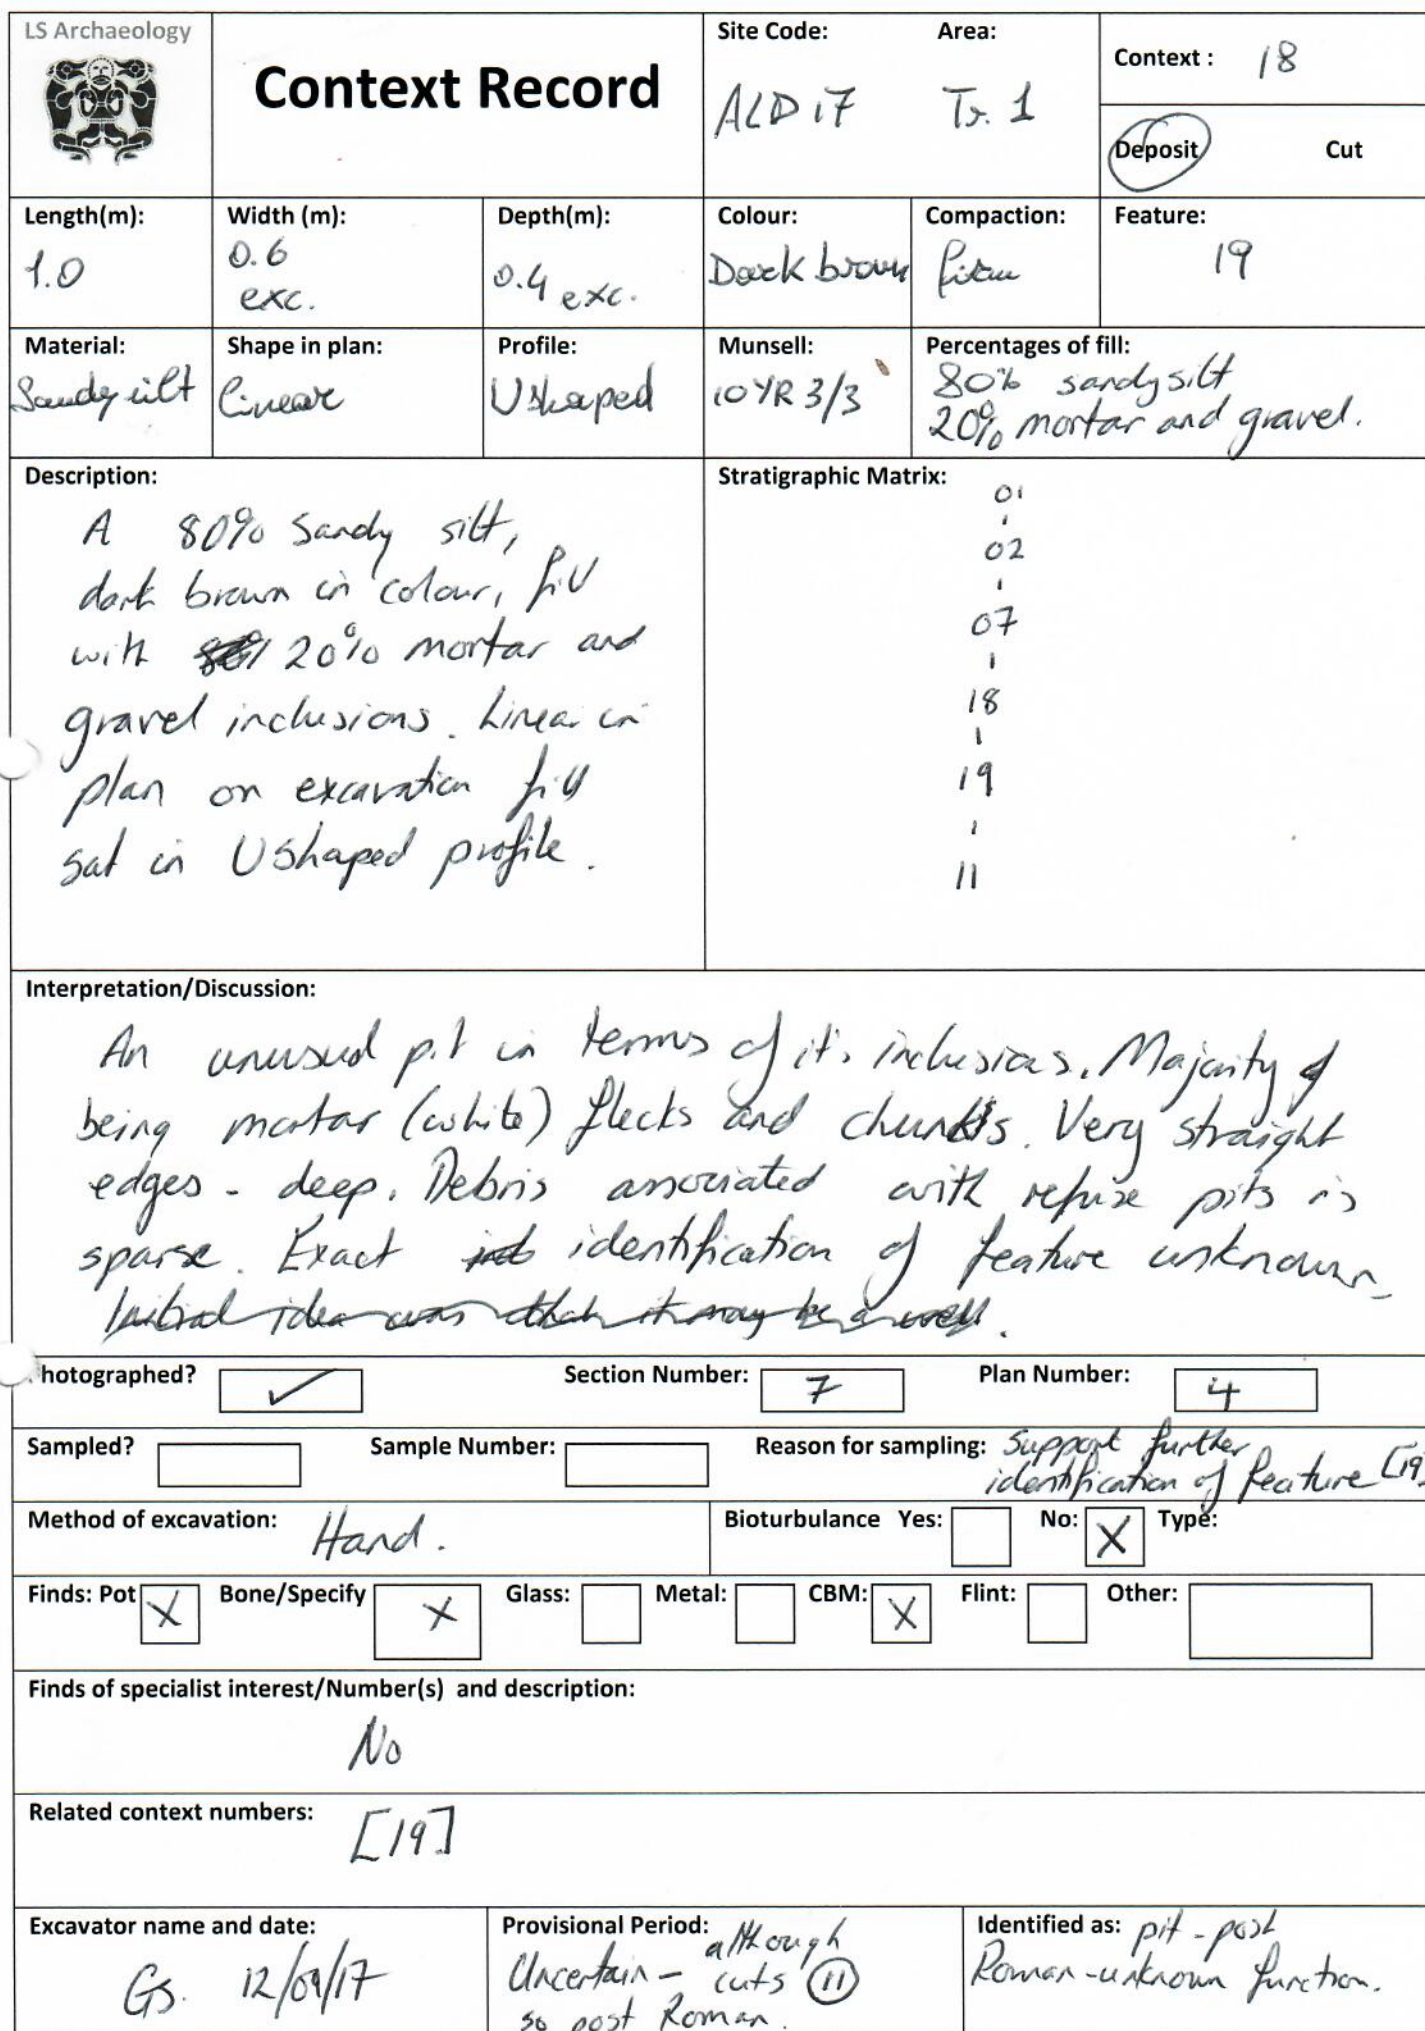 LS Archaeology
Context Record
Site Code:
ALD 17
Area:
Tr. 1
Context : 18
Deposit Cut
Length(m):
1.0
Width (m):
0.6
exc.
Depth(m):
0.4 exc.
Colour:
Dark brown
Compaction:
firm
Feature:
19
Material:
Sandy silt
Shape in plan:
linear
Profile:
U shaped
Munsell:
10YR 3/3
Percentages of fill:
80% sandy silt
20% mortar and gravel.
Description:
A 80% sandy silt,
dark brown in colour, fill
with 20% mortar and
gravel inclusions. Linear in
plan on excavation fill
sat in U shaped profile.
Stratigraphic Matrix:
01
02
07
18
19
11
Interpretation/Discussion:
An unusual pit in terms of its inclusions. Majority of
being mortar (white) flecks and chunks. Very straight
edges - deep. Debris associated with refuse pits is
sparse. Exact identification of feature unknown.
Initial idea was that it may be a well.
hotographed? ✓ Section Number: 7 Plan Number: 4
Sampled? Sample Number: Reason for sampling: Support further
identification of feature [19]
Method of excavation: Hand.
Bioturbulance Yes: No: X Type:
Finds: Pot X Bone/Specify X Glass: Metal: CBM: X Flint: Other:
Finds of specialist interest/Number(s) and description:
No
Related context numbers: [19]
Excavator name and date:
GS. 12/09/17
Provisional Period: although
Uncertain - cuts (11)
so post Roman.
Identified as: pit - post
Roman - unknown function.